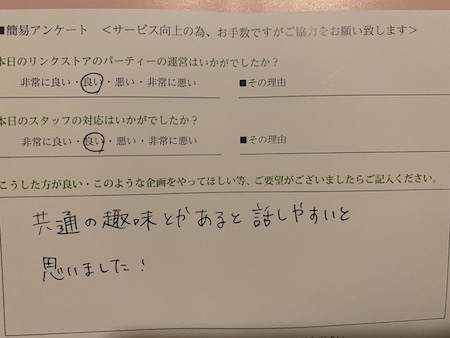 ■簡易アンケート　＜サービス向上の為、お手数ですがご協力をお願い致します＞
本日のリンクストアのパーティーの運営はいかがでしたか？
非常に良い・良い・悪い・非常に悪い　■その理由
本日のスタッフの対応はいかがでしたか？
非常に良い・良い・悪い・非常に悪い　■その理由
こうした方が良い・このような企画をやってほしい等、ご要望がございましたらご記入ください。
共通の趣味とかあると話しやすいと
思いました！